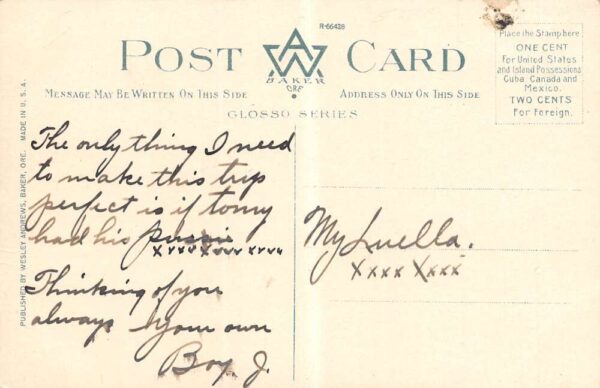 R-66428
POST CARD
AWA
BAKER
ORE.
MESSAGE MAY BE WRITTEN ON THIS SIDE
ADDRESS ONLY ON THIS SIDE
GLOSSO SERIES
Place the Stamp here
ONE CENT
For United States
and Island Possessions
Cuba, Canada and
Mexico.
TWO CENTS
For Foreign.
PUBLISHED BY WESLEY ANDREWS, BAKER, ORE. MADE IN U. S. A.
The only thing I need
to make this trip
perfect is if tomy
had his pussie
xxxx xxxx xxxx
Thinking of you
always Your own
Boy. J.
My Luella.
xxxx xxxx